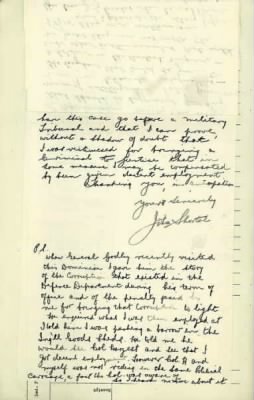 have this case go before a military
Tribunal and that I can prove
without a shadow of doubt that
I was victimised for bringing a
Criminal to Justice that in
some measure I may be compensated
by been given decent employment.
Thanking you in anticipation
Yours sincerely
John
P.S.
When General Godley recently visited
this Dominion I gave him the story
of the Corruption that existed in the
Defence Department during his term of
office and of the penalty paid by
me for bringing that Corruption to light
He enquired what I was then employed at
I told him I was pushing a barrow in the
Goods Sheds. He told me he
would see Col and see that I
got decent employment. However Col and
myself was not riding in the same
Carriage, & for the Col not aware of
so I heard nothing about it